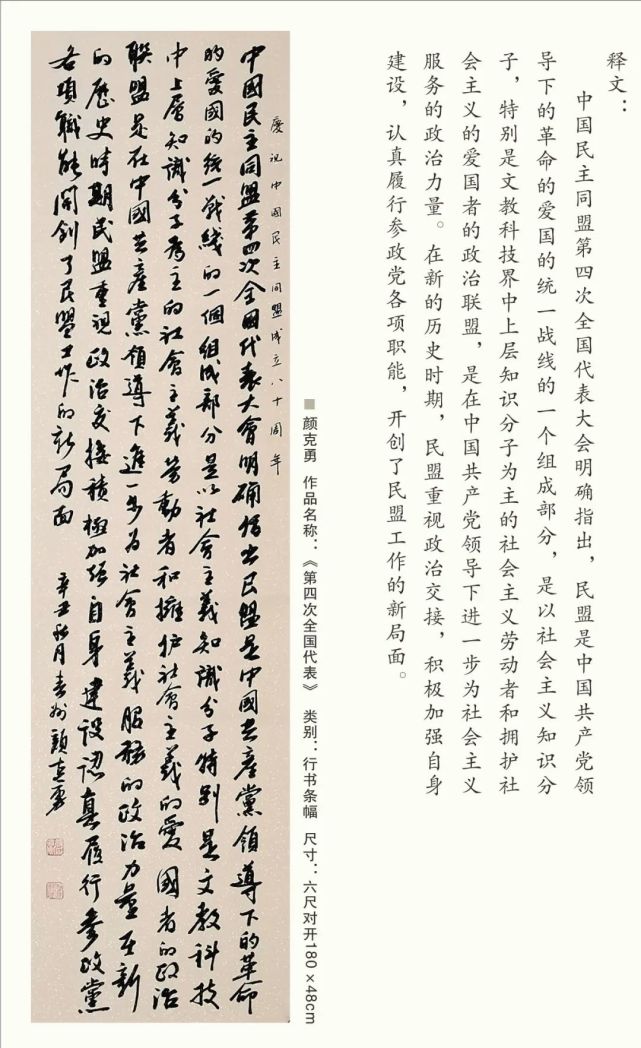 释文：
中国民主同盟第四次全国代表大会明确指出，民盟是中国共产党领
导下的革命的爱国的统一战线的一个组成部分，是以社会主义知识分
子，特别是文教科技界中上层知识分子为主的社会主义劳动者和拥护社
会主义的爱国者的政治联盟，是在中国共产党领导下进一步为社会主义
服务的政治力量。在新的历史时期，民盟重视政治交接，积极加强自身
建设，认真履行参政党各项职能，开创了民盟工作的新局面。
颜克勇 作品名称：《第四次全国代表》 类别：行书条幅 尺寸：六尺对开180×48cm
慶祝中國民主同盟成立八十周年
中國民主同盟第四次全國代表大會明确指出民盟是中國共產黨領導下的革命
的愛國的統一戰綫的一個組成部分是以社會主義知識分子特别是文教科技
中上層知識分子為主的社會主義勞動者和擁护社會主義的愛國者的政治
联盟是在中國共產黨領導下進一步为社會主義服務的政治力量在新
的歷史時期民盟重視政治交接積極加强自身建设認真履行參政黨
各項職能開創了民盟工作的新局面
辛丑秋月 顏克勇